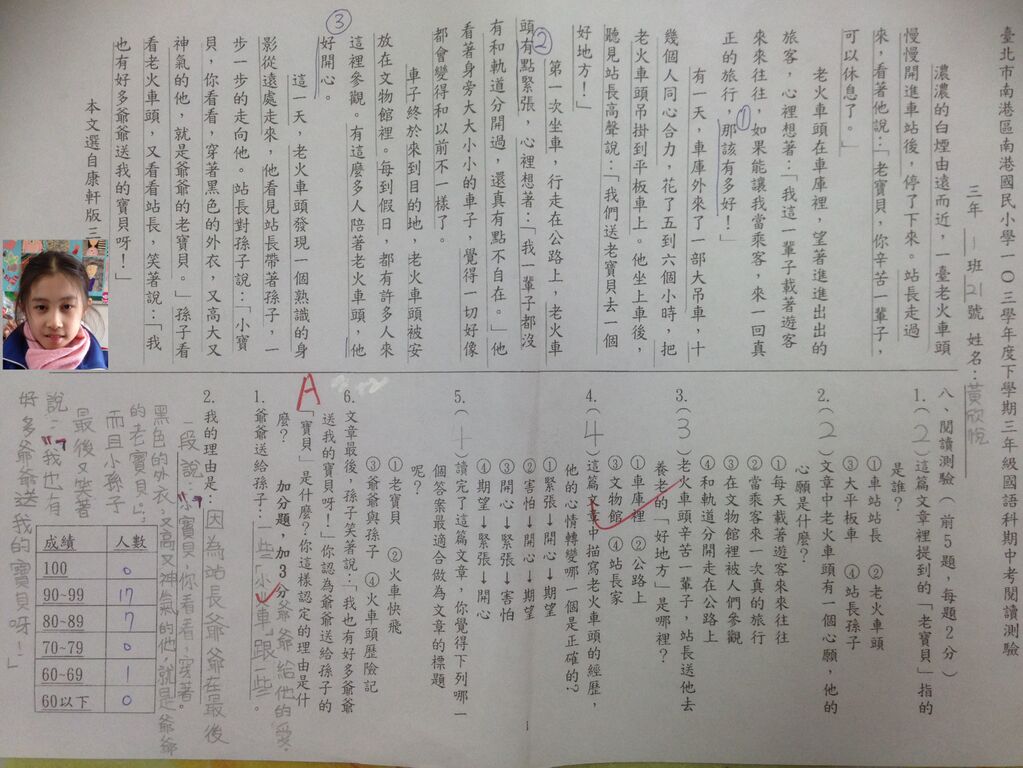 臺北市南港區南港國民小學一〇三學年度下學期三年級國語科期中考閱讀測驗
三年一班21號 姓名：黃欣悅
濃濃的白煙由遠而近，一臺老火車頭
慢慢開進車站後，停了下來。站長走過
來，看著他說：「老寶貝，你辛苦一輩子，
可以休息了。」
老火車頭在車庫裡，望著進進出出的
旅客，心裡想著：「我這一輩子載著遊客
來來往往，如果能讓我當乘客，來一回真
正的旅行，那該有多好！」
①
有一天，車庫外來了一部大吊車，十
幾個人同心合力，花了五到六個小時，把
老火車頭吊掛到平板車上。他坐上車後，
聽見站長高聲說：「我們送老寶貝去一個
好地方！」
②
第一次坐車，行走在公路上，老火車
頭有點緊張，心裡想著：「我一輩子都沒
有和軌道分開過，還真有點不自在。」他
看著身旁大大小小的車子，覺得一切好像
都會變得和以前不一樣了。
車子終於來到目的地，老火車頭被安
放在文物館裡。每到假日，都有許多人來
這裡參觀。有這麼多人陪著老火車頭，他
好開心。
③
這一天，老火車頭發現一個熟識的身
影從遠處走來，他看見站長帶著孫子，一
步一步的走向他。站長對孫子說：「小寶
貝，你看看，穿著黑色的外衣，又高大又
神氣的他，就是爺爺的老寶貝。」孫子看
看老火車頭，又看看站長，笑著說：「我
也有好多爺爺送我的寶貝呀！」
本文選自康軒版三
八、閱讀測驗（前5題，每題2分）
1.（2）這篇文章裡提到的「老寶貝」指的
是誰？
①車站站長 ②老火車頭
③大平板車 ④站長孫子
2.（2）文章中老火車頭有一個心願，他的
心願是什麼？
①每天載著遊客來來往往
②當乘客來一次真的旅行
③在文物館裡被人們參觀
④和軌道分開走在公路上
3.（3）老火車頭辛苦一輩子，站長送他去
養老的「好地方」是哪裡？
①車庫裡 ②公路上
③文物館 ④站長家
4.（4）這篇文章中描寫老火車頭的經歷，
他的心情轉變哪一個是正確的？
①緊張→開心→期望
②害怕→開心→期望
③開心→緊張→害怕
④期望→緊張→開心
5.（1）讀完了這篇文章，你覺得下列哪一
個答案最適合做為文章的標題
呢？
①老寶貝 ②火車快飛
③爺爺與孫子 ④火車頭歷險記
6.文章最後，孫子笑著說：「我也有好多爺爺
送我的寶貝呀！」你認為爺爺送給孫子的
「寶貝」是什麼？你這樣認定的理由是什
麼？ 加分題，加3分
A
1.爺爺送給孫子：一些「小車」跟一些
爺爺給他的愛。
2.我的理由是：因為站長爺爺在最後
一段說：「小寶貝，你看看，穿著
黑色的外衣，又高又神氣的他，就是爺爺
的老寶貝。」
而且小孫子
最後又笑著
說：「我也有
好多爺爺送我的寶貝呀！」
成績 人數
100 0
90~99 17
80~89 7
70~79 0
60~69 1
60以下 0